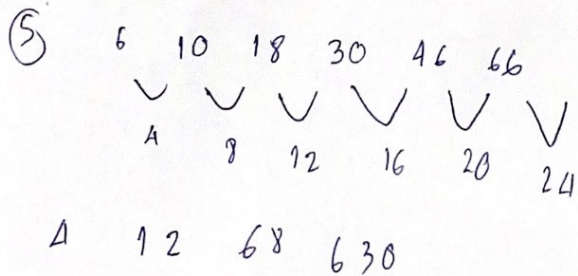 5 6 10 18 30 46 66
4 8 12 16 20 24
4 12 68 630